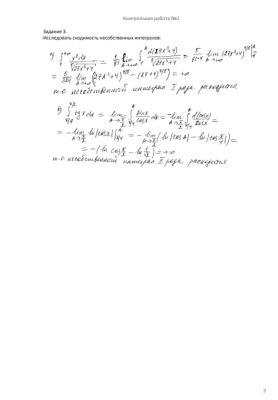 Контрольная работа №2
Задание 3.
Исследовать сходимость несобственных интегралов:
а) ∫₁^{+∞} x² dx / ⁵√(27x³+4) = 1/81 lim_{A→+∞} ∫₁^A d(27x³+4) / ⁵√(27x³+4) = 5/81·4 lim_{A→+∞} (27x³+4)^{4/5} |₁^A =
= 5/324 lim_{A→+∞} ((27A³+4)^{4/5} − (27+4)^{4/5}) = +∞
т.о. несобственный интеграл I рода расходится
б) ∫_{π/4}^{π/2} tg x dx = lim_{A→π/2} ∫_{π/4}^A sin x / cos x dx = − lim_{A→π/2} ∫_{π/4}^A d(cos x) / cos x =
= − lim_{A→π/2} ln|cos x| |_{π/4}^A = − lim_{A→π/2} (ln|cos A| − ln|cos π/4|) =
= −(ln cos π/2 − ln 1/√2) = +∞
т.о. несобственный интеграл II рода расходится